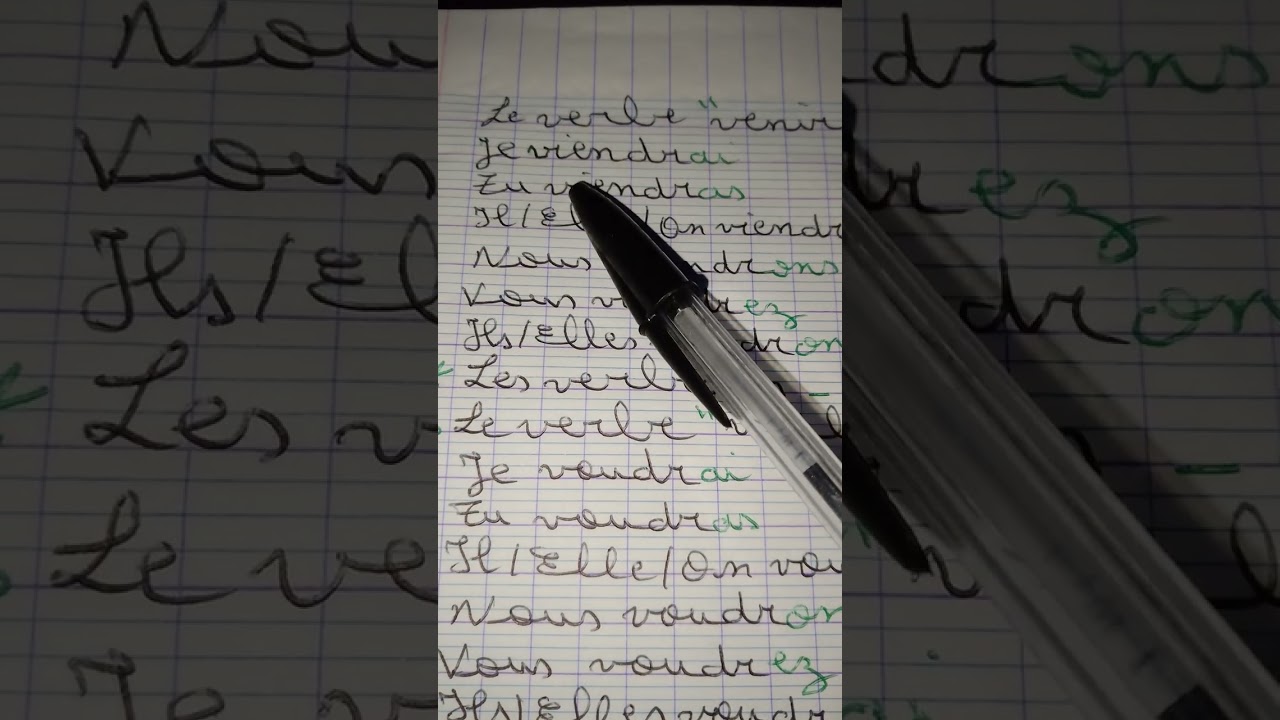 Le verbe "venir
Je viendrai
Tu viendras
Il/Elle/On viendr
Nous viendrons
Vous viendrez
Ils/Elles viendron
Les verbes
Le verbe "v
Je voudrai
Tu voudras
Il/Elle/On vou
Nous voudron
Vous voudrez
Ils/Elles voudr